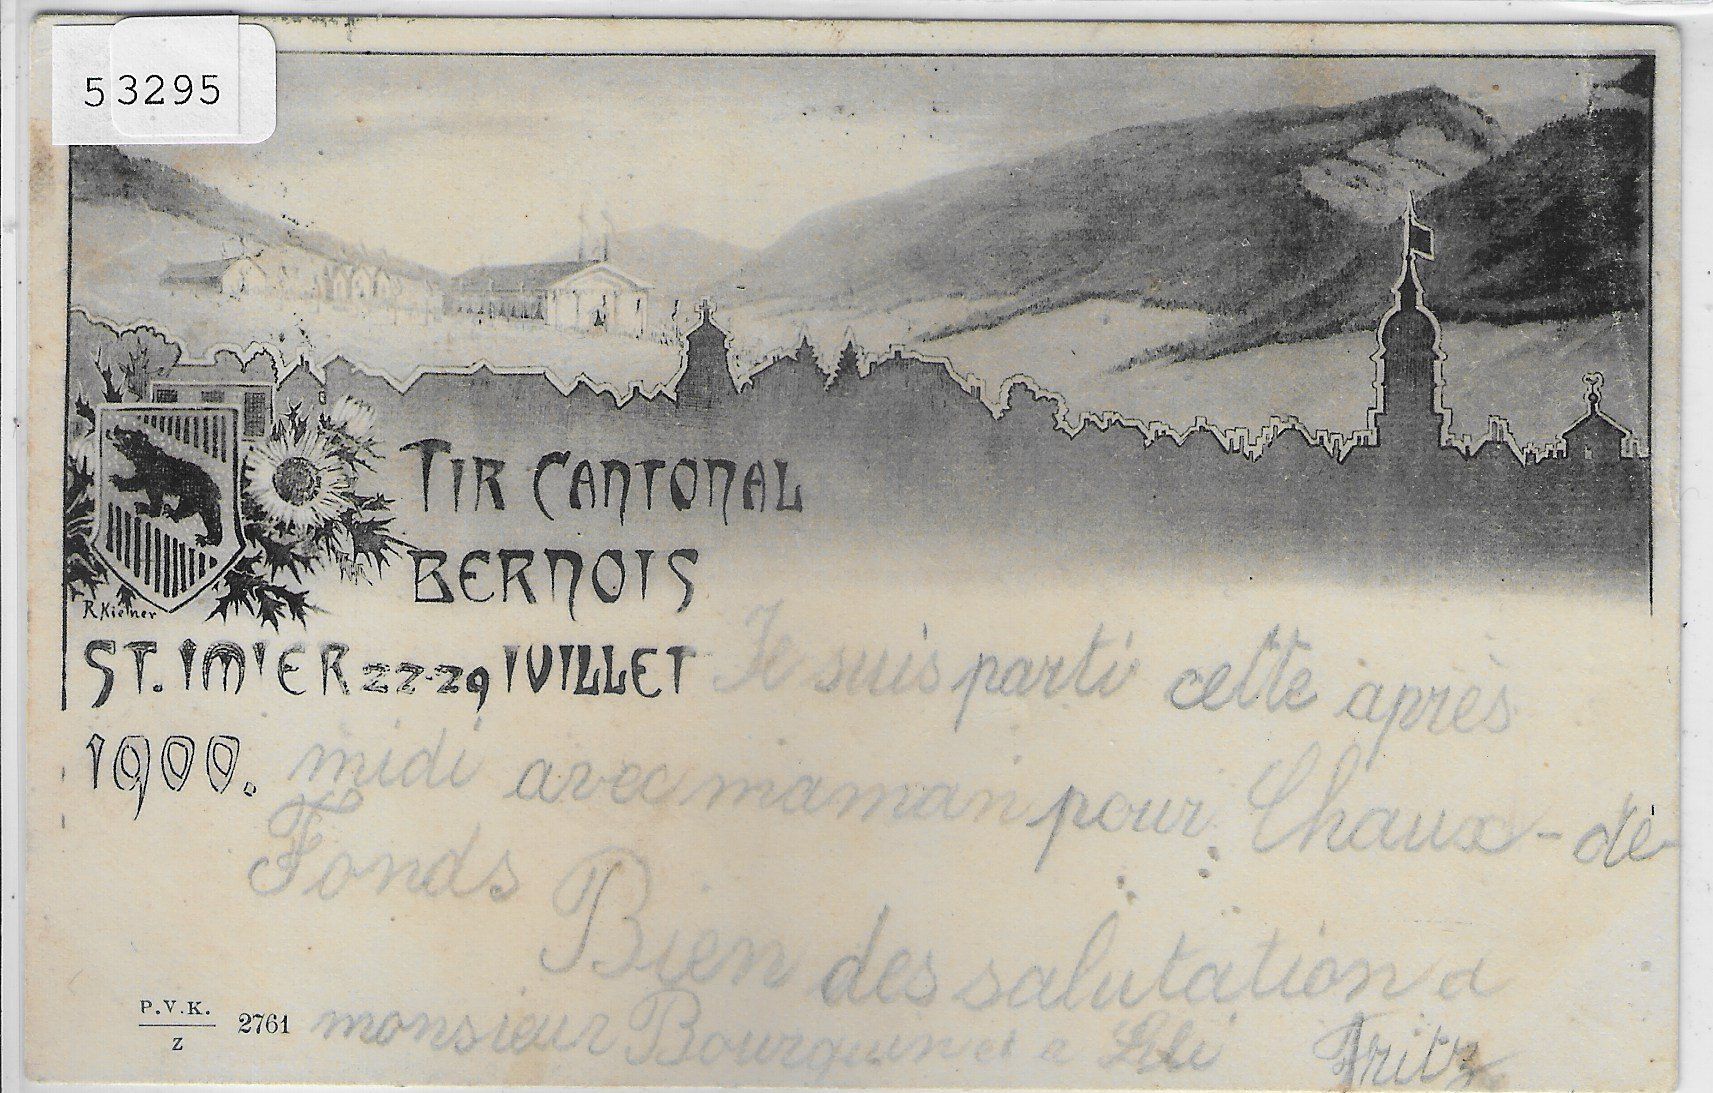 53295
TIR CANTONAL
BERNOIS
R. Kiener
ST. IMIER 22-29 IUILLET
1900.
Je suis parti cette après
midi avec maman pour Chaux-de-
Fonds
Bien des salutation a
monsieur Bourquin et a Lili Fritz
P.V.K.
Z
2761